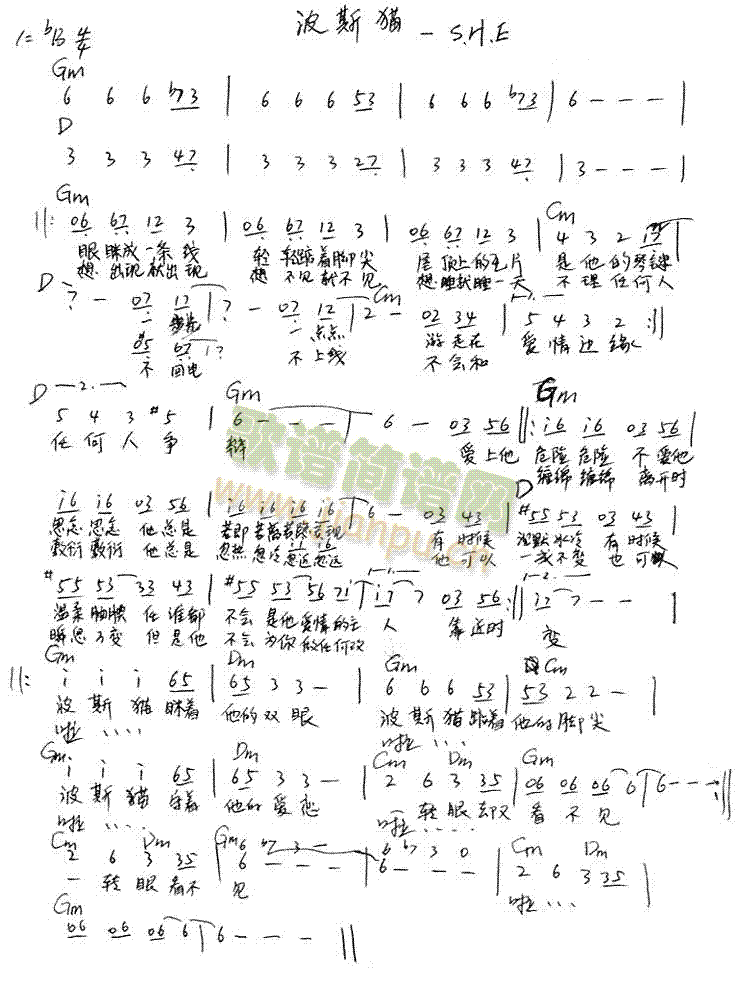 波斯猫 - S.H.E
1=ᵇB 4/4
Gm
6 6 6 ᵇ7 3 | 6 6 6 5 3 | 6 6 6 ᵇ7 3 | 6 - - - |
D
3 3 3 4 7 | 3 3 3 2 7 | 3 3 3 4 7 | 3 - - - |
Gm Cm
||: 06 67 12 3 | 06 67 12 3 | 06 67 12 3 | 4 3 2 17 |
眼眯成一条线 轻轻踮着脚尖 屋顶上的瓦片 是他的琴键
想出现就出现 想不见就不见 想睡就睡一天 不理任何人
D Cm
7 - 07 17 | 7 - 07 12 | 2 - 02 34 | 5 4 3 2 :||
一步步 一点点 游走在 爱情边缘
05 07 | 7
不回电 不上线 不会和
D -2.- Gm Gm
5 4 3 #5 | 6 - - - | 6 - 03 56 ||: i6 i6 03 56 |
任何人争 辩 爱上他 危险危险 不爱他
缠绵缠绵 离开时
D
i6 i6 03 56 | i6 i6 i6 i6 | 6 - 03 43 | #55 53 03 43 |
思念思念 他总是 若即若离若隐若现 有时候 沉默冰冷 有时候
敷衍敷衍 他总是 忽热忽冷忽近忽远 他可以 一成不变 也可以
#55 53 33 43 | #55 53 56 71 | 17 7 03 56 :|| 17 7 - - |
温柔腼腆 任谁都 不会是他爱情的主 人 靠近时 变
瞬息万变 但是他 不会为你做任何改
Gm Dm Gm Cm
||: i i i 65 | 65 3 3 - | 6 6 6 53 | 53 2 2 - |
波斯猫眯着 他的双眼 波斯猫踮着 他的脚尖
啦 .... 啦 ....
Gm Dm Cm Dm Gm
i i i 65 | 65 3 3 - | 2 6 3 35 | 06 06 06 6 | 6 - - - :||
波斯猫守着 他的爱恋 一转眼却又 看不见
啦 .... 啦 ....
Cm Dm Gm 6 ᵇ7 3 - 6 ᵇ7 3 0 Cm Dm
2 6 3 35 | 6 - - - | 6 - - - | 2 6 3 35 |
一转眼看不 见 啦 ....
Gm
06 06 06 6 | 6 - - - ||
歌谱简谱网
www.jianpu.cn